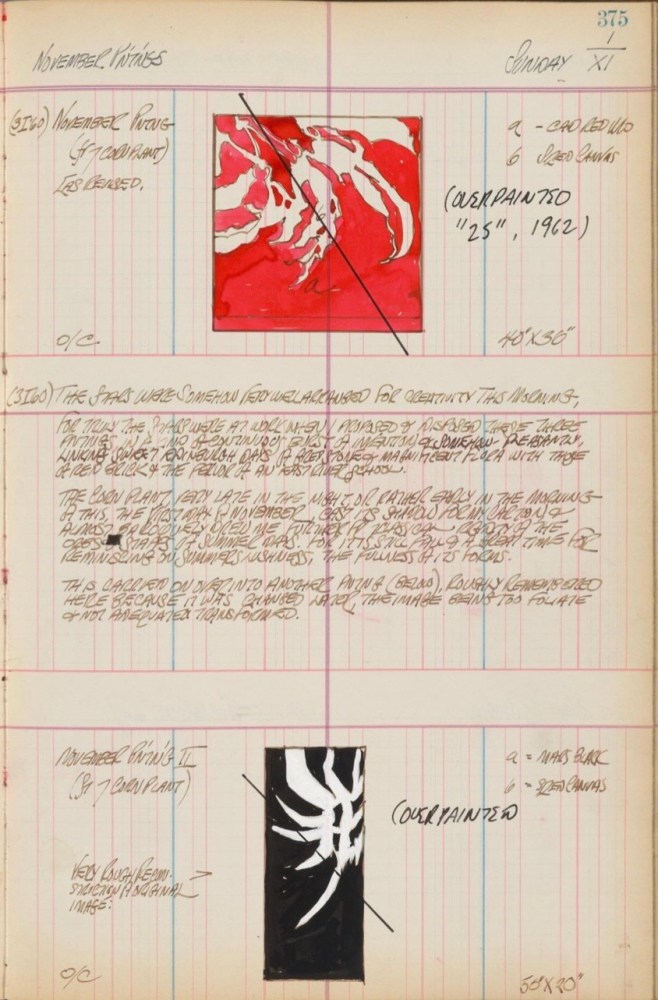 375
NOVEMBER PNTNGS
SUNDAY 1/XI
(3160) NOVEMBER PNTNG
(ST 7 CORN PLANT)
[AS REVISED.
a - CAD RED MED
b SIZED CANVAS
(OVERPAINTED
"25", 1962)
a
O/C
40" X 36"
(3160) THE STARS WERE SOMEHOW VERY WELL ARRANGED FOR CREATIVITY THIS MORNING,
FOR TRULY THE STARS WERE AT WORK WHEN I PROPOSED & DISPOSED THESE THREE
PNTNGS IN A KIND OF CONTINUOUS BURST OF INVENTION & SOMEHOW PLEASANTLY,
LINKING SWEET EDINBURGH DAYS OF GREY STONE & MAGNIFICENT FLORA WITH THOSE
OF RED BRICK & THE FERVOR OF AN EAST RIVER SCHOOL.
THE CORN PLANT, VERY LATE IN THE NIGHT, OR RATHER EARLY IN THE MORNING
OF THIS, THE FIRST DAY OF NOVEMBER, CAST ITS SHADOW FOR MY CARTOON &
ALMOST DREW ME OF THE
STARS OF SUMMER DAYS. FOR IT IS STILL FALL & A GREAT TIME FOR
REMINISCING ON SUMMER'S LUSHNESS, THE FULLNESS OF ITS FORMS.
THIS CARRIED ON OVER INTO ANOTHER PNTNG (BELOW), ROUGHLY REMEMBERED
HERE BECAUSE IT WAS CHANGED LATER, THE IMAGE BEING TOO FOLIATE
& NOT ADEQUATELY TRANSFORMED.
NOVEMBER PNTNG II
(ST 7 CORN PLANT)
a = MARS BLACK
b = SIZED CANVAS
(OVERPAINTED
VERY ROUGH RECON-
STRUCTION OF ORIGINAL
IMAGE:
O/C
50" X 20"